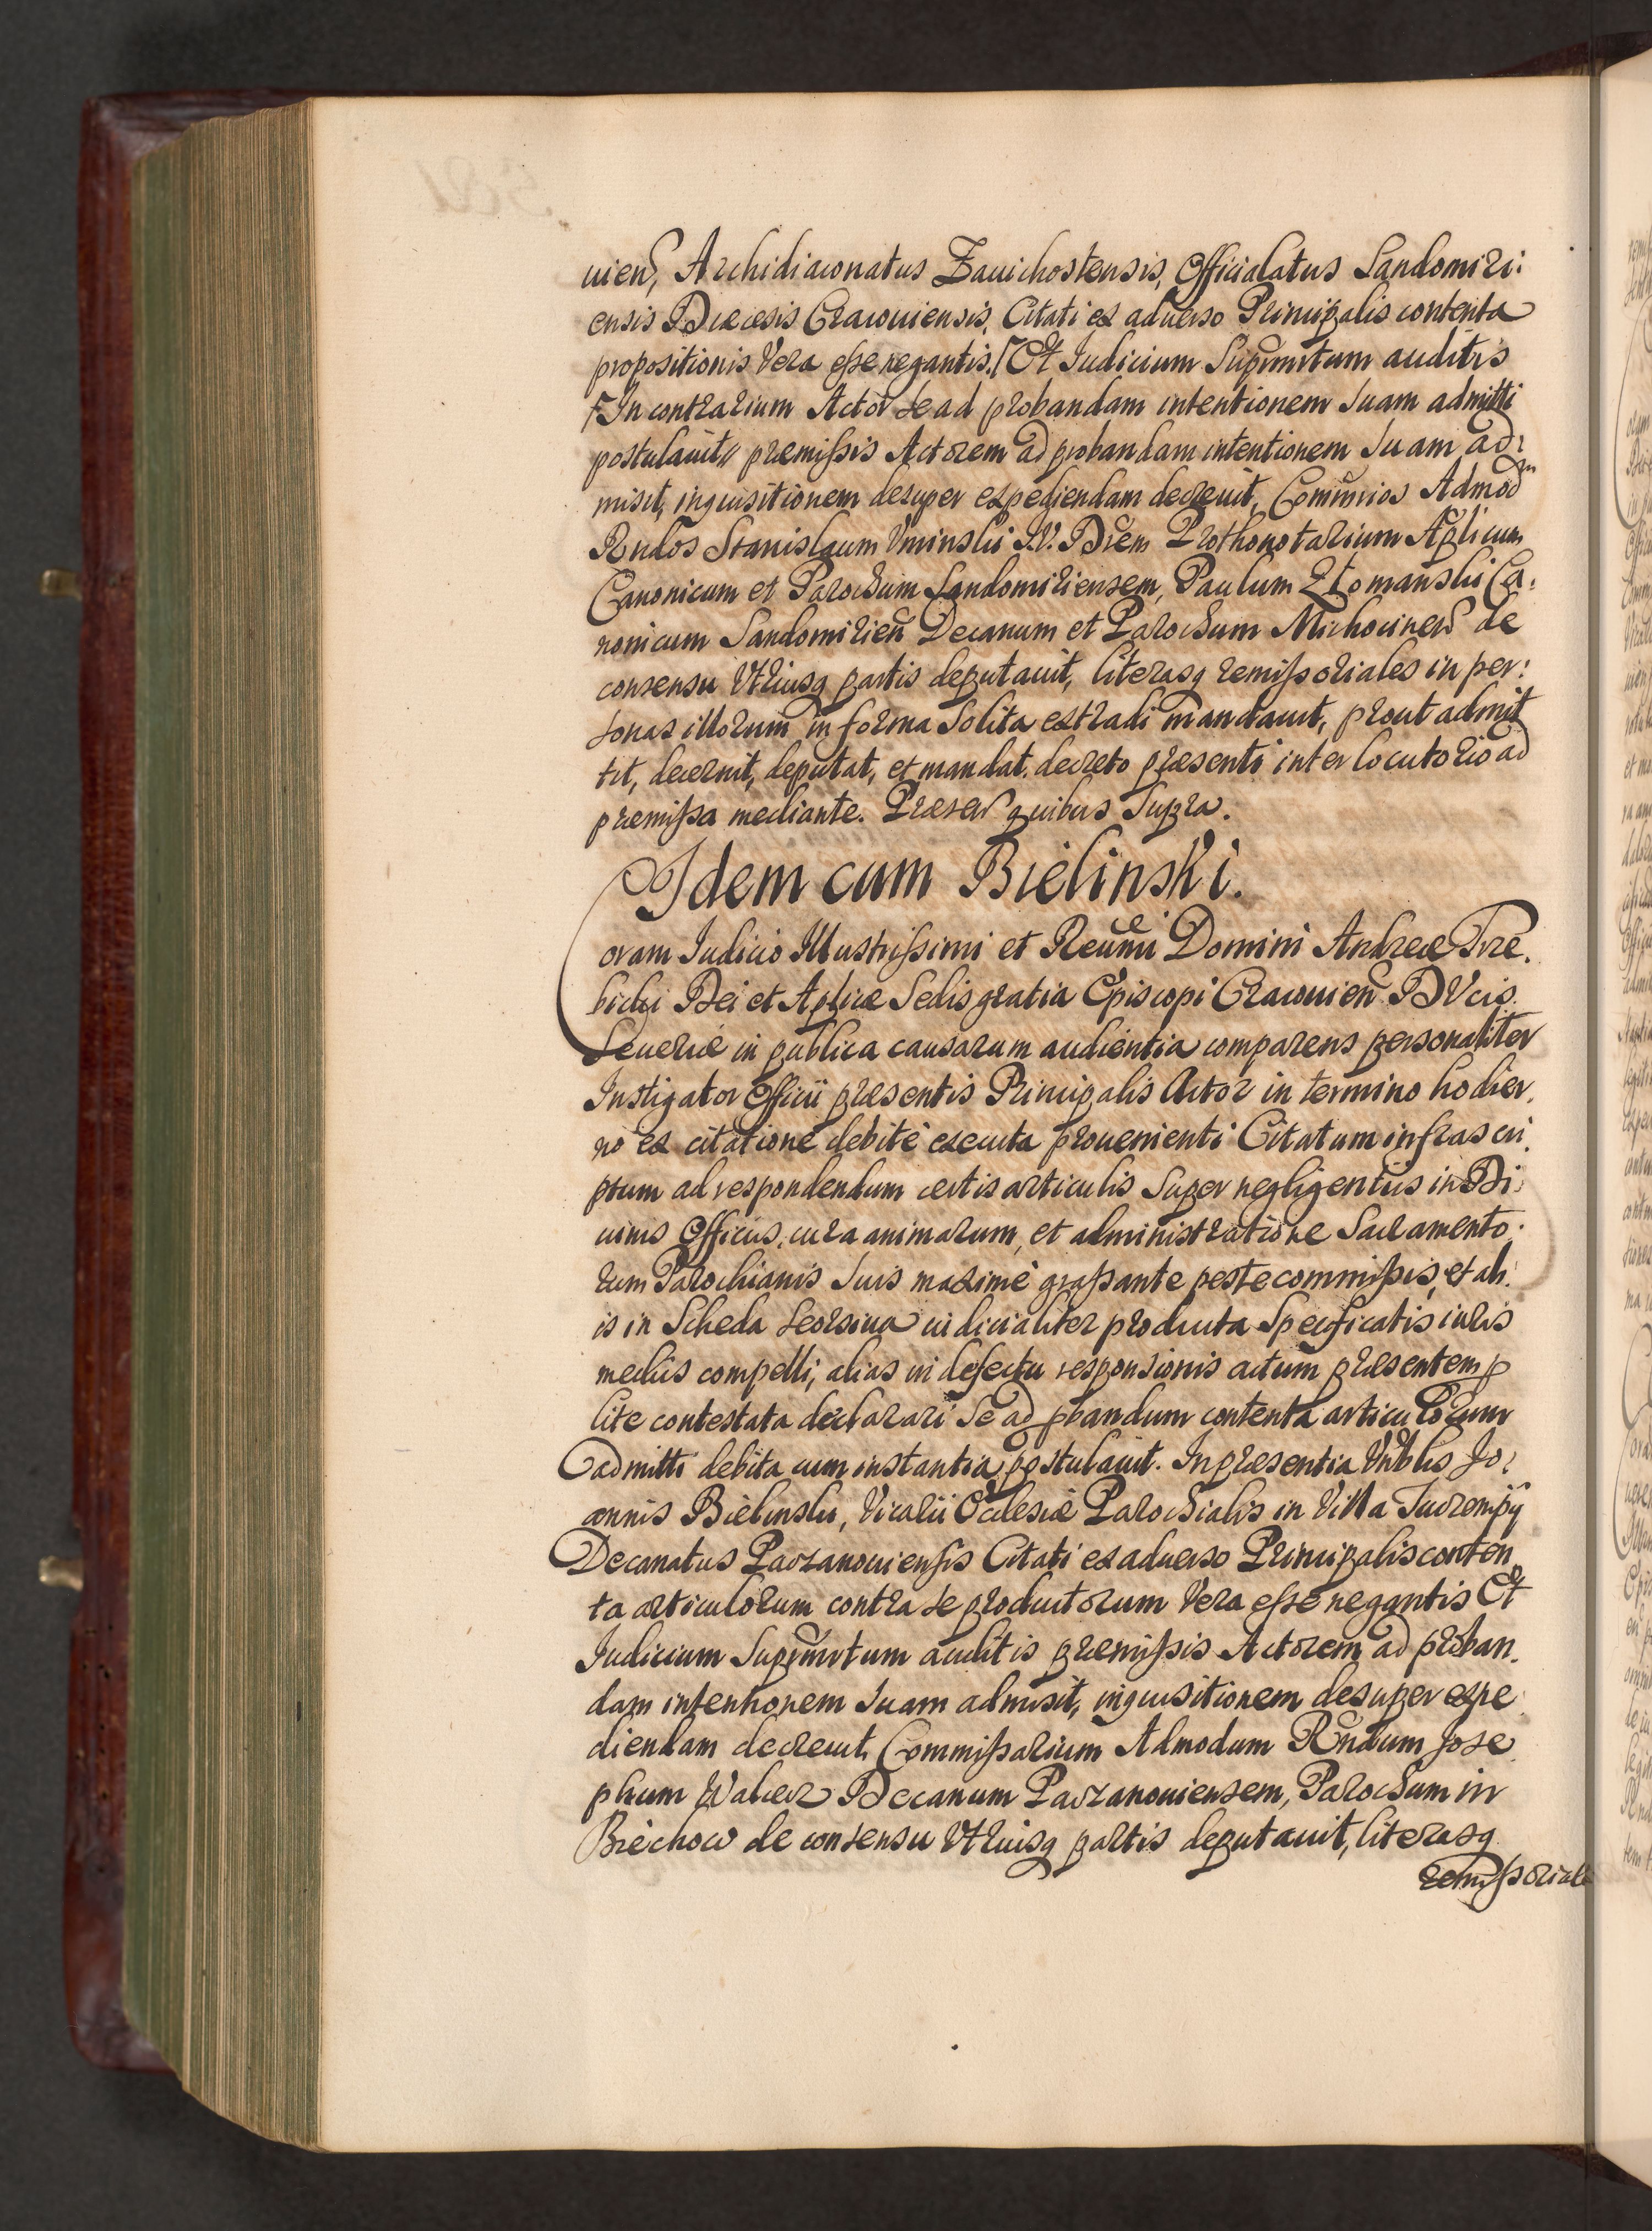 uien, Archidiaconatus Zauichostensis, Officialatus Sandomiri:
ensis Diæcesis Cracouiensis, Citati ex aduerso Principalis contenta
propositionis Vera esse negantis. Et Iudicium Suprmrtum auditis
In contrarium Actor se ad probandam intentionem suam admitti
postulauit præmissis Actorem ad probandam intentionem suam ad:
misit, inquisitionem desuper expediendam decreuit, Commrios Admod
Rndos Stanislaum Uminski I.V. Drem Prothonotarium Aplicum
Canonicum et Parochum Sandomiriensem, Paulum Ztomanski Ca:
nonicum Sandomirien Decanum et Parochum Michocinen de
consensu Vtriusq partis deputauit, literasq remissoriales in per:
sonas illorum in forma solita extradi mandauit, prout admit
tit, decernit, deputat, et mandat decreto præsenti interlocutorio ad
premissa mediante. Præsen quibus supra.
Idem cum Bielinski.
Coram Iudicio Illustrissimi et Reumi Domini Andreæ Trze.
bicki Dei et Aplicæ Sedis gratia Episcopi Cracouien Ducis
Seueriæ in publica causarum audientia comparens personaliter
Instigator Officii præsentis Principalis Actor in termino hodier.
no ex citatione debite executa prouenienti Citatum infrascri
ptum ad respondendum certis articulis super negligentiis in Di:
uinis Officiis, cura animarum, et administratione Sacramento.
rum Parochianis suis maxime grassante peste commissis, et ali
is in Scheda seorsiua iudicialiter producta specificatis iuris
mediis compelli, alias in defectu responsionis actum præsentem p
lite contestata declarari se ad pbandum contenta articulorum
admitti debita cum instantia postulauit. In præsentia Vnblis Jo:
annis Bielinski, Vicarii Ecclesiæ Parochialis in Villa Tuczempy
Decanatus Paczanouiensis Citati ex aduerso Principalis conten
ta articulorum contra se productorum Vera esse negantis Et
Iudicium Suprmrtum auditis præmissis Actorem ad proban.
dam intentionem suam admisit, inquisitionem desuper expe
diendam decreuit, Commissarium Admodum Rndum Jose
phum Walcer Decanum Paczanouiensem, Parochum in
Biechow de consensu Vtriusq partis deputauit, literasq
remissoriale